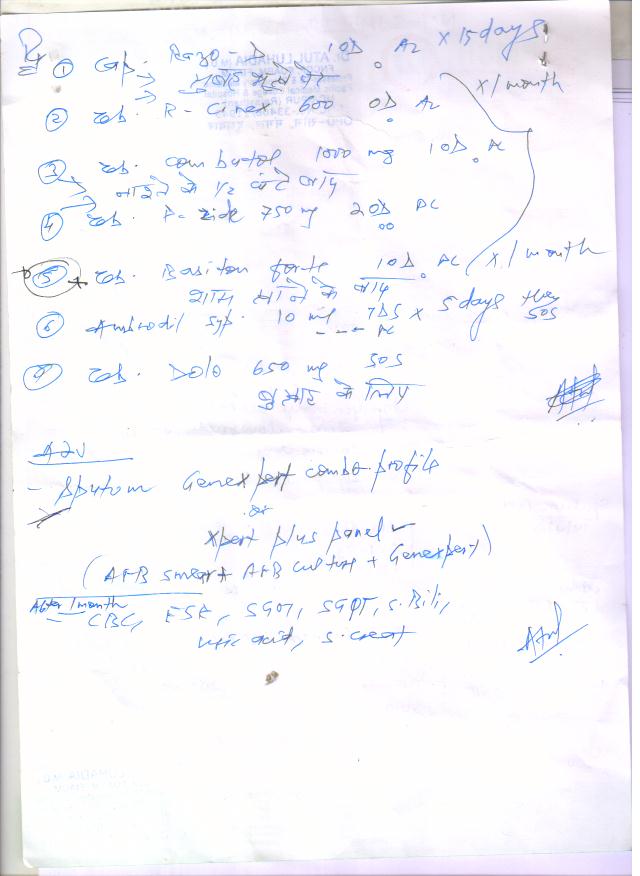 Rx
① Cap. Razo-D 10D AC x 15 days
x 1 month
② Tab. R-Cinex 600 OD AC
③ Tab. Combutol 1000 mg 10D AC
④ Tab. P-zide 750 mg 20D AC
⑤ Tab. forte 10D AC x 1 month
शाम खाने के बाद
⑥ Ambrodil syp. 10 ml TDS x 5 days then SOS
⑦ Tab. Dolo 650 mg SOS
बुखार के लिए
ADV
- Sputum Genexpert combo profile
or
Xpert plus panel
(AFB smear + AFB culture + Genexpert)
After 1 month
- CBC, ESR, SGOT, SGPT, S. Bili,
uric acid, S. creat